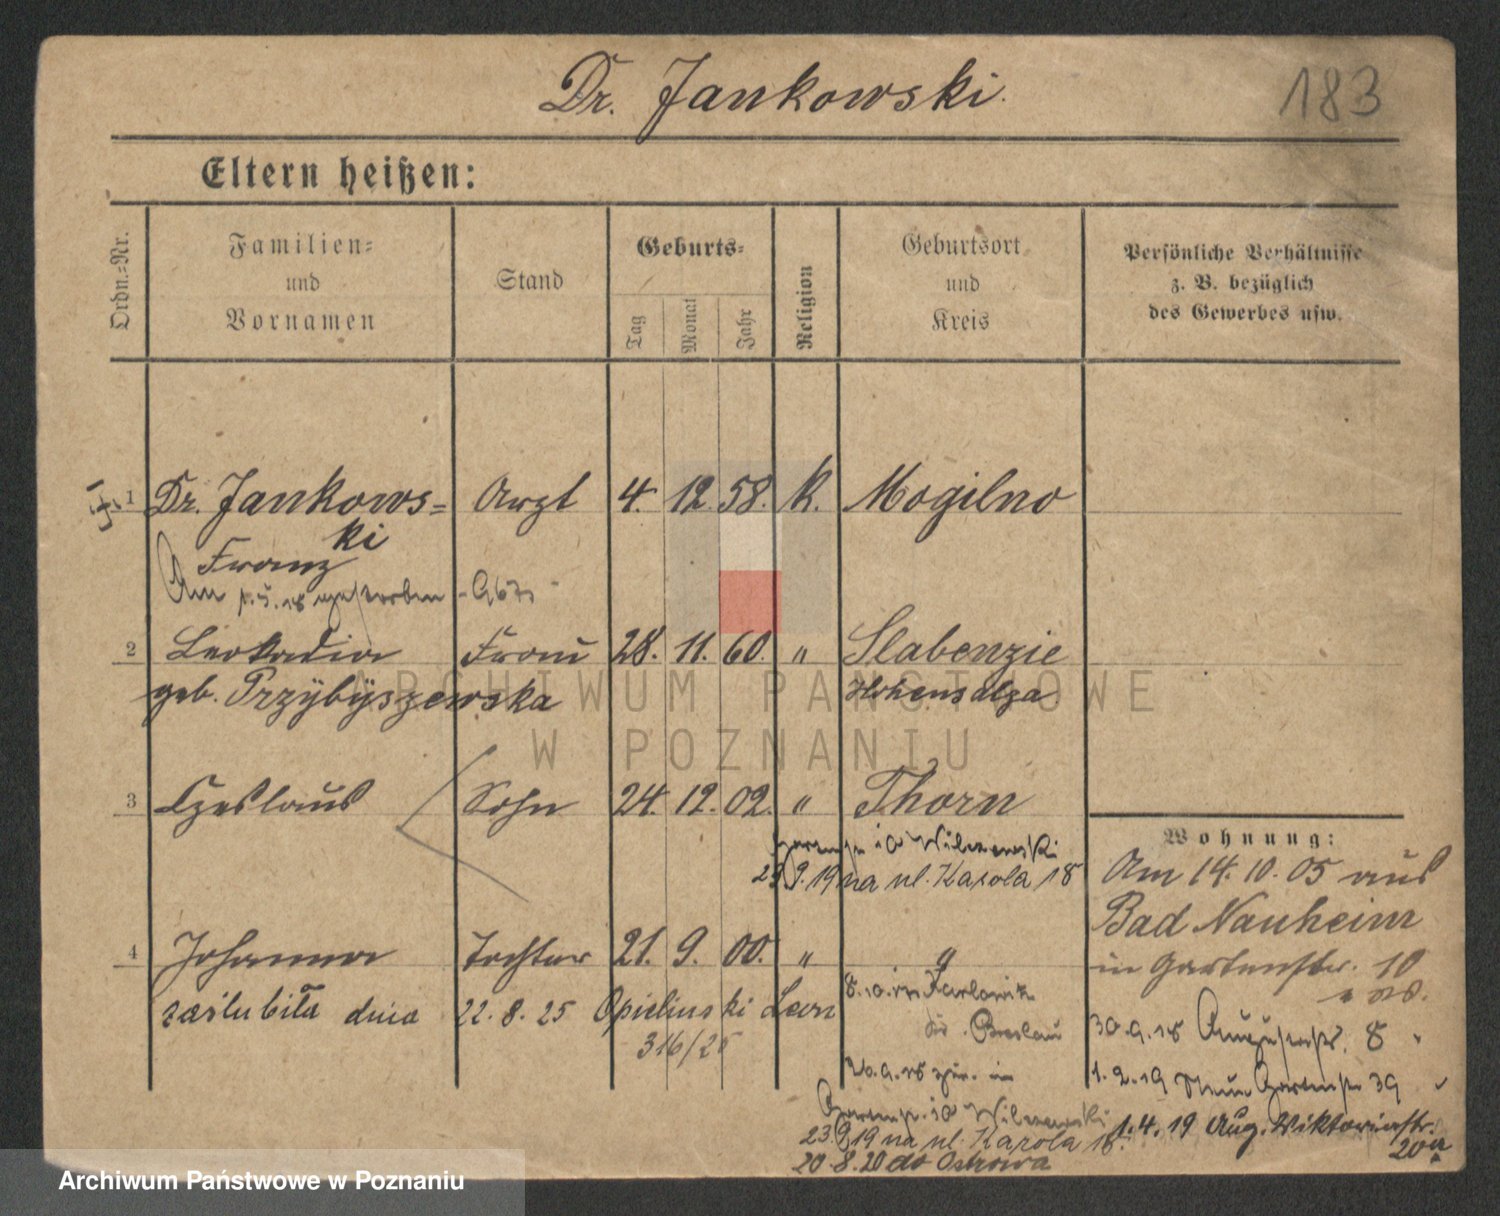 Dr. Jankowski.
183
Eltern heißen:
Ordn.-Nr.
Familien-
und
Vornamen
Stand
Geburts-
Tag
Monat
Jahr
Religion
Geburtsort
und
Kreis
Persönliche Verhältnisse
z. B. bezüglich
des Gewerbes usw.
1 Dr. Jankows= Arzt 4. 12. 58. K. Mogilno
ki
Franz
Am gestorben
2 Leokadia Frau 28. 11. 60. " Slabenzie
geb. Przÿbÿszewska Hohensalza
3 Czeslaus Sohn 24. 12. 02. " Thorn
Gartenstr 18 Wilzewski
23.9.19 na ul. Karola 18
Wohnung:
Am 14. 10. 05 aus
Bad Nauheim
in Gartenstr. 10
4 Johanna Tochter 21. 9. 00. " "
zaślubiła dnia 22. 8. 25 Opielinski Leon
316/25
8.10. in Karlowitz
Breslau
in
30.9.18 Auguststr. 8
1.2.19 Neue Gartenstr 39
Gartenstr. 18 Wilzewski
1.4.19 Aug. Viktoriastr.
20a
23.9.19 na ul. Karola 18.
20.8.20 do Ostrowa
ARCHIWUM PAŃSTWOWE
W POZNANIU
Archiwum Państwowe w Poznaniu